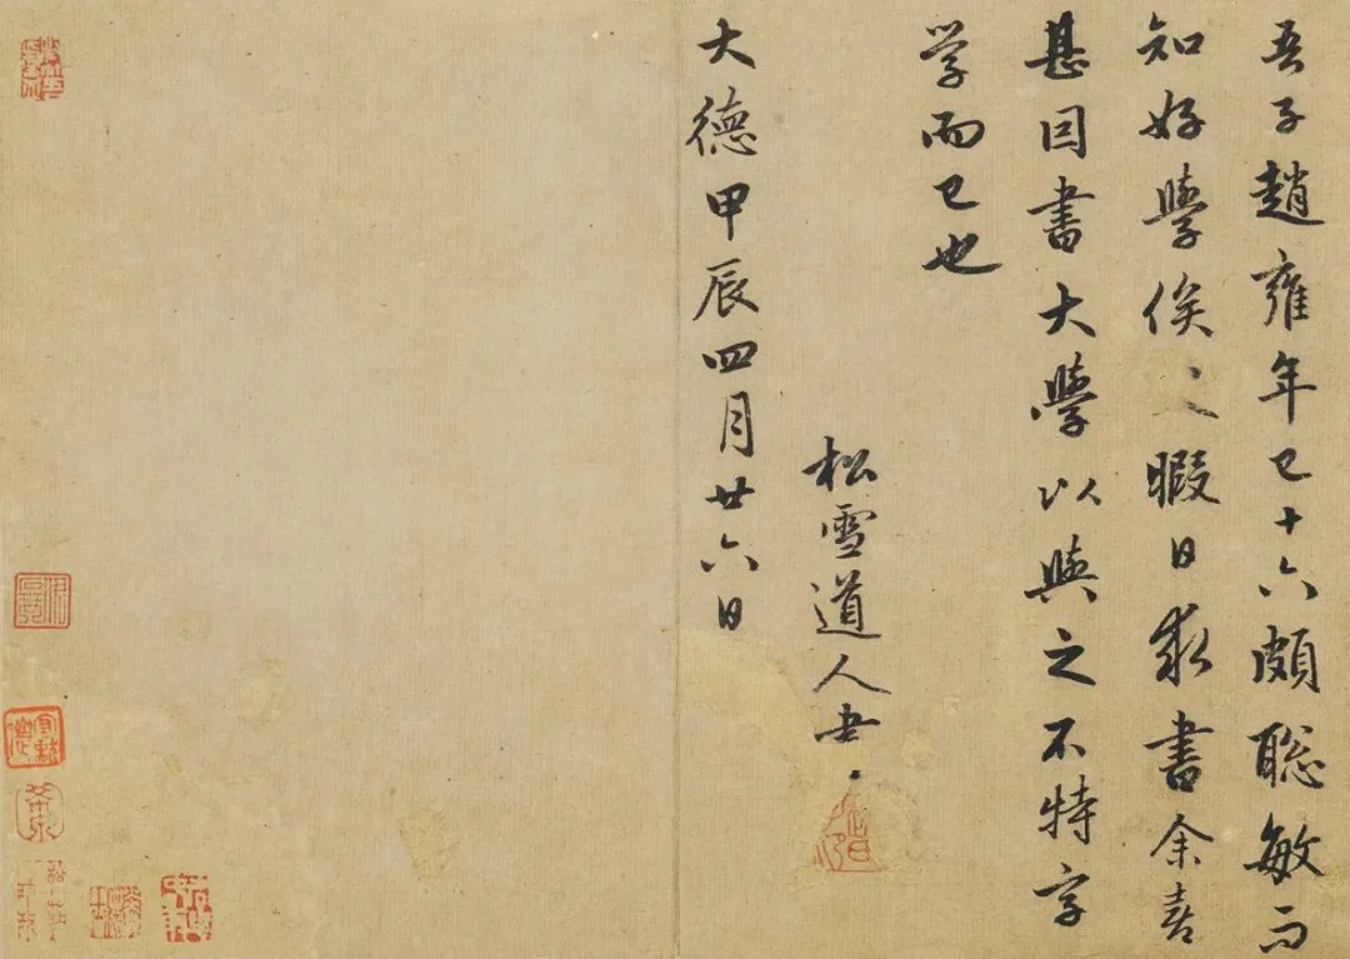 吾子趙雍年已十六頗聰敏而
知好學俟之暇日求書余喜
甚因書大學以與之不特字
学而已也
松雪道人書
大德甲辰四月廿六日